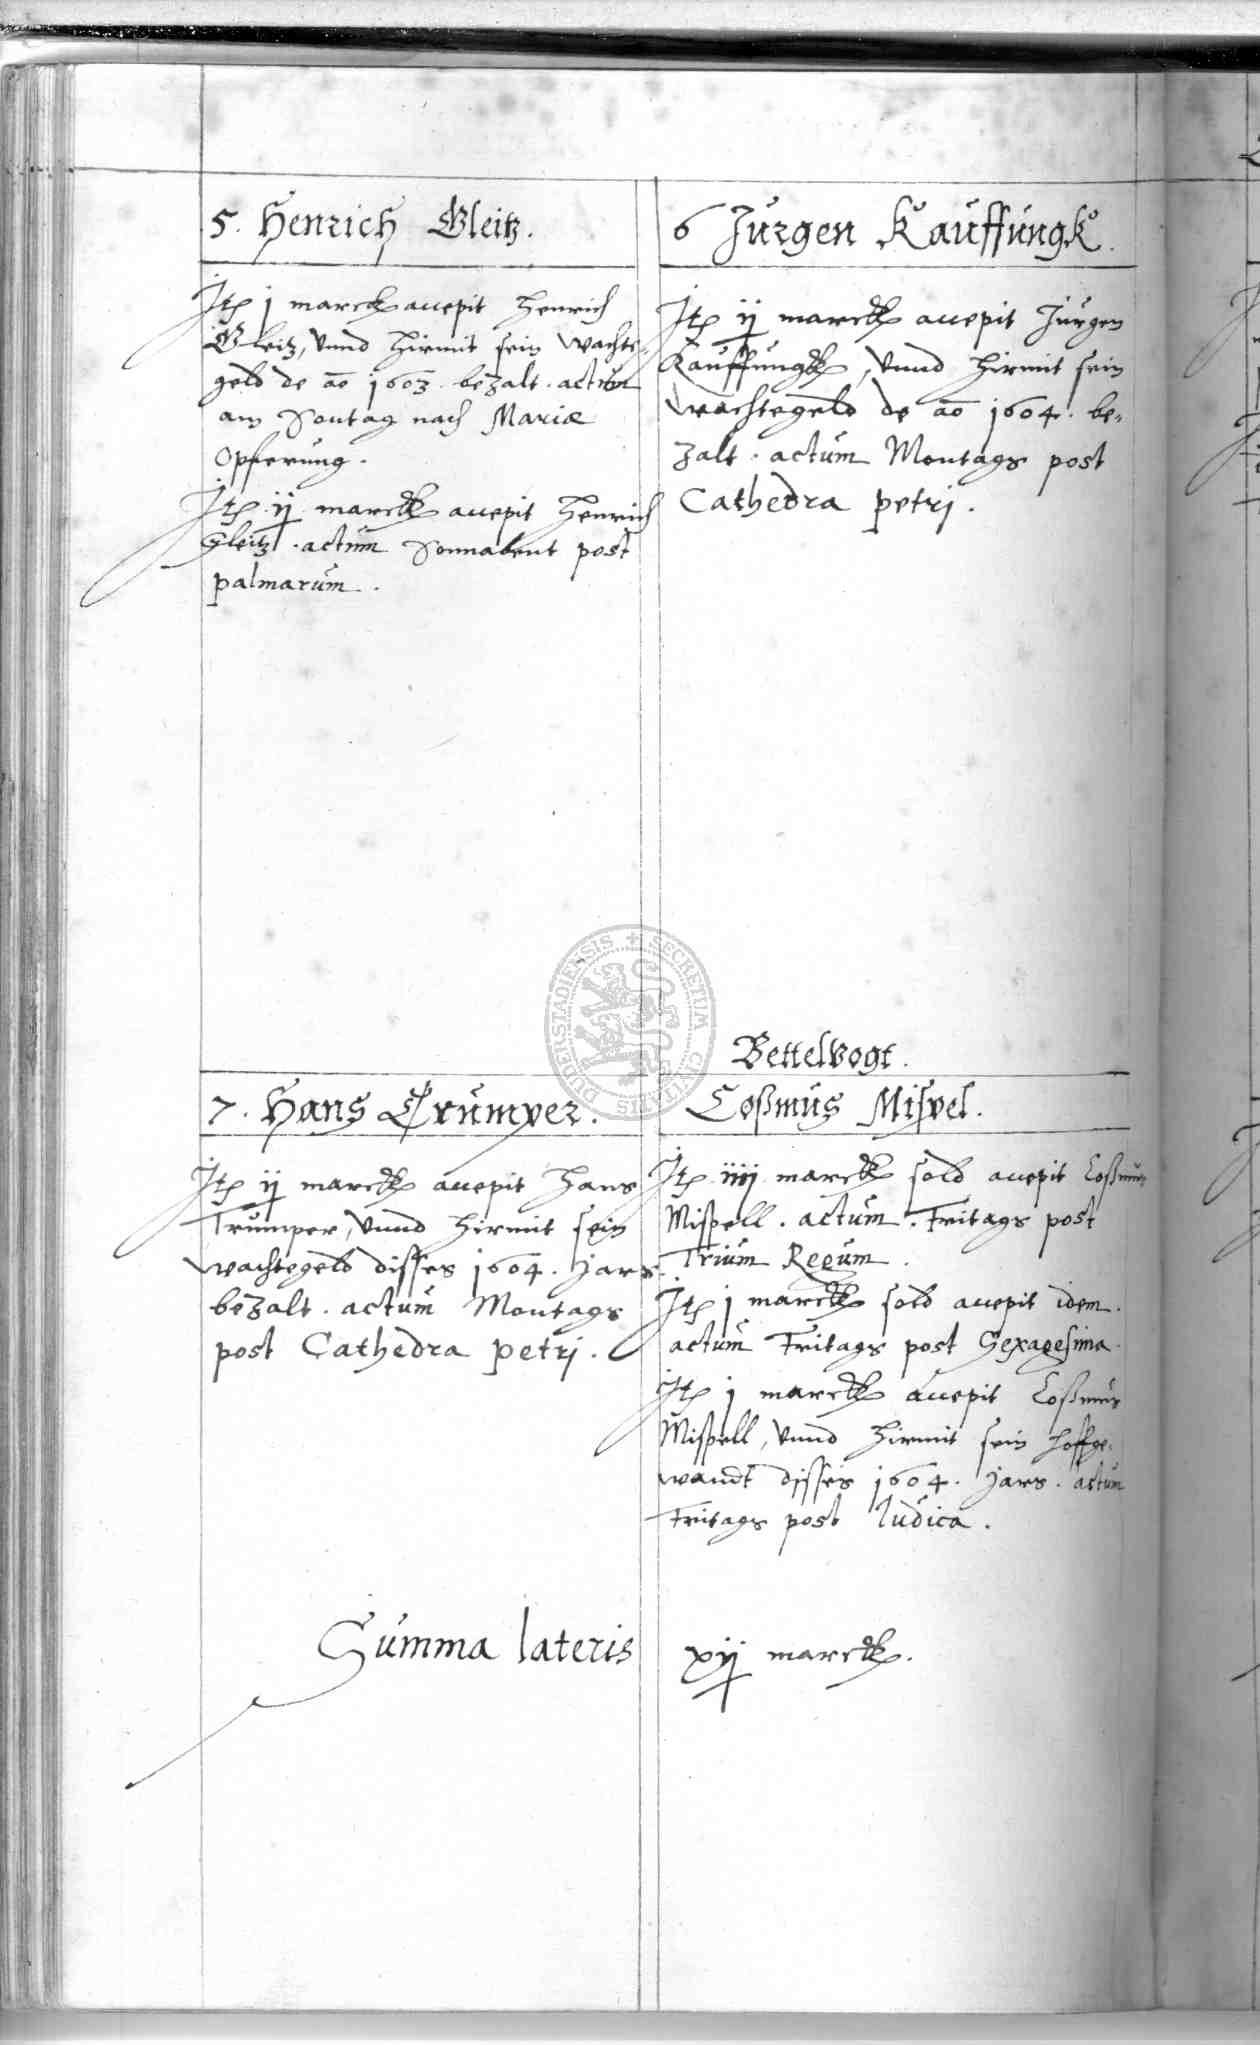 5. Henrich Gleitz.
Itē j marck accepit Henrich
Gleitz, vnnd hirmit sein wachte-
geld de ao 1603. bezalt. actum
am Sontag nach Mariæ
Opferung.
Itē ij marck accepit Henrich
Gleitz. actum Sonnabent post
palmarum.
6 Jurgen Kauffungk.
Itē ij marck accepit Jurgen
Kauffungk, vnnd hirmit sein
wachtegeld de ao 1604. be-
zalt. actum Montags post
Cathedra petrj.
7. Hans Trumper.
Itē ij marck accepit Hans
Trumper, vnnd hirmit sein
wachtegeld disses 1604. jars
bezalt. actum Montags
post Cathedra petrj.
Bettelvogt.
Coßmus Mispel.
Itē iiij marck sold accepit Coßmus
Mispell. actum. Fritags post
Trium Regum.
Itē j marck sold accepit idem.
actum Fritags post Sexagesima.
Itē j marck accepit Coßmus
Mispell, vnnd hirmit sein hoffge-
wandt disses 1604. jars. actum
Fritags post Iudica.
Summa lateris xij marck.
SECRETUM CIVITATIS DUDERSTADIENSIS